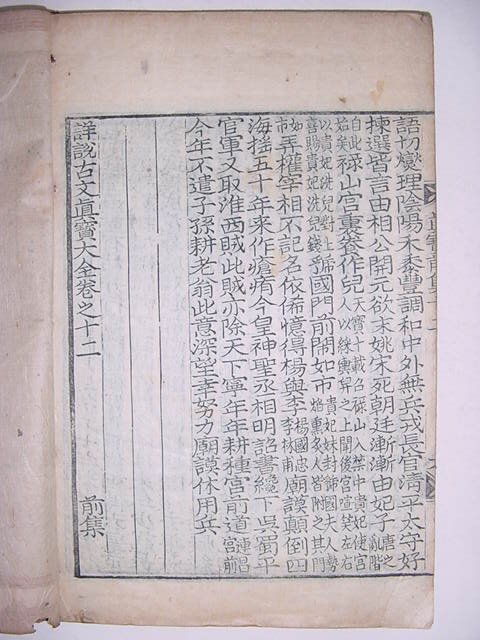 語切燮理陰陽禾黍豊調和中外無兵戎長官清平太守好
揀選皆言由相公開元欲末姚宋死朝廷漸漸由妃子唐之亂階
自此始矣祿山宮裏養作兒天寶十載召祿山入禁中貴妃使宮人以綵輿舁之上聞後宮喧笑左右
以貴妃洗兒對上喜賜貴妃洗兒錢虢國門前鬧如市貴妃姊封虢國夫人勢焰熏炙人皆附之其門
如市弄權宰相不記名依俙憶得楊與李楊國忠李林甫廟謨顚倒四
海搖五十年來作瘡痏今皇神聖丞相明詔書纔下吳蜀平
官軍又取淮西賊此賊亦除天下寧年年耕種宮前道連昌宮前
今年不遣子孫耕老翁此意深望幸努力廟謨休用兵
詳說古文眞寶大全卷之十二 前集